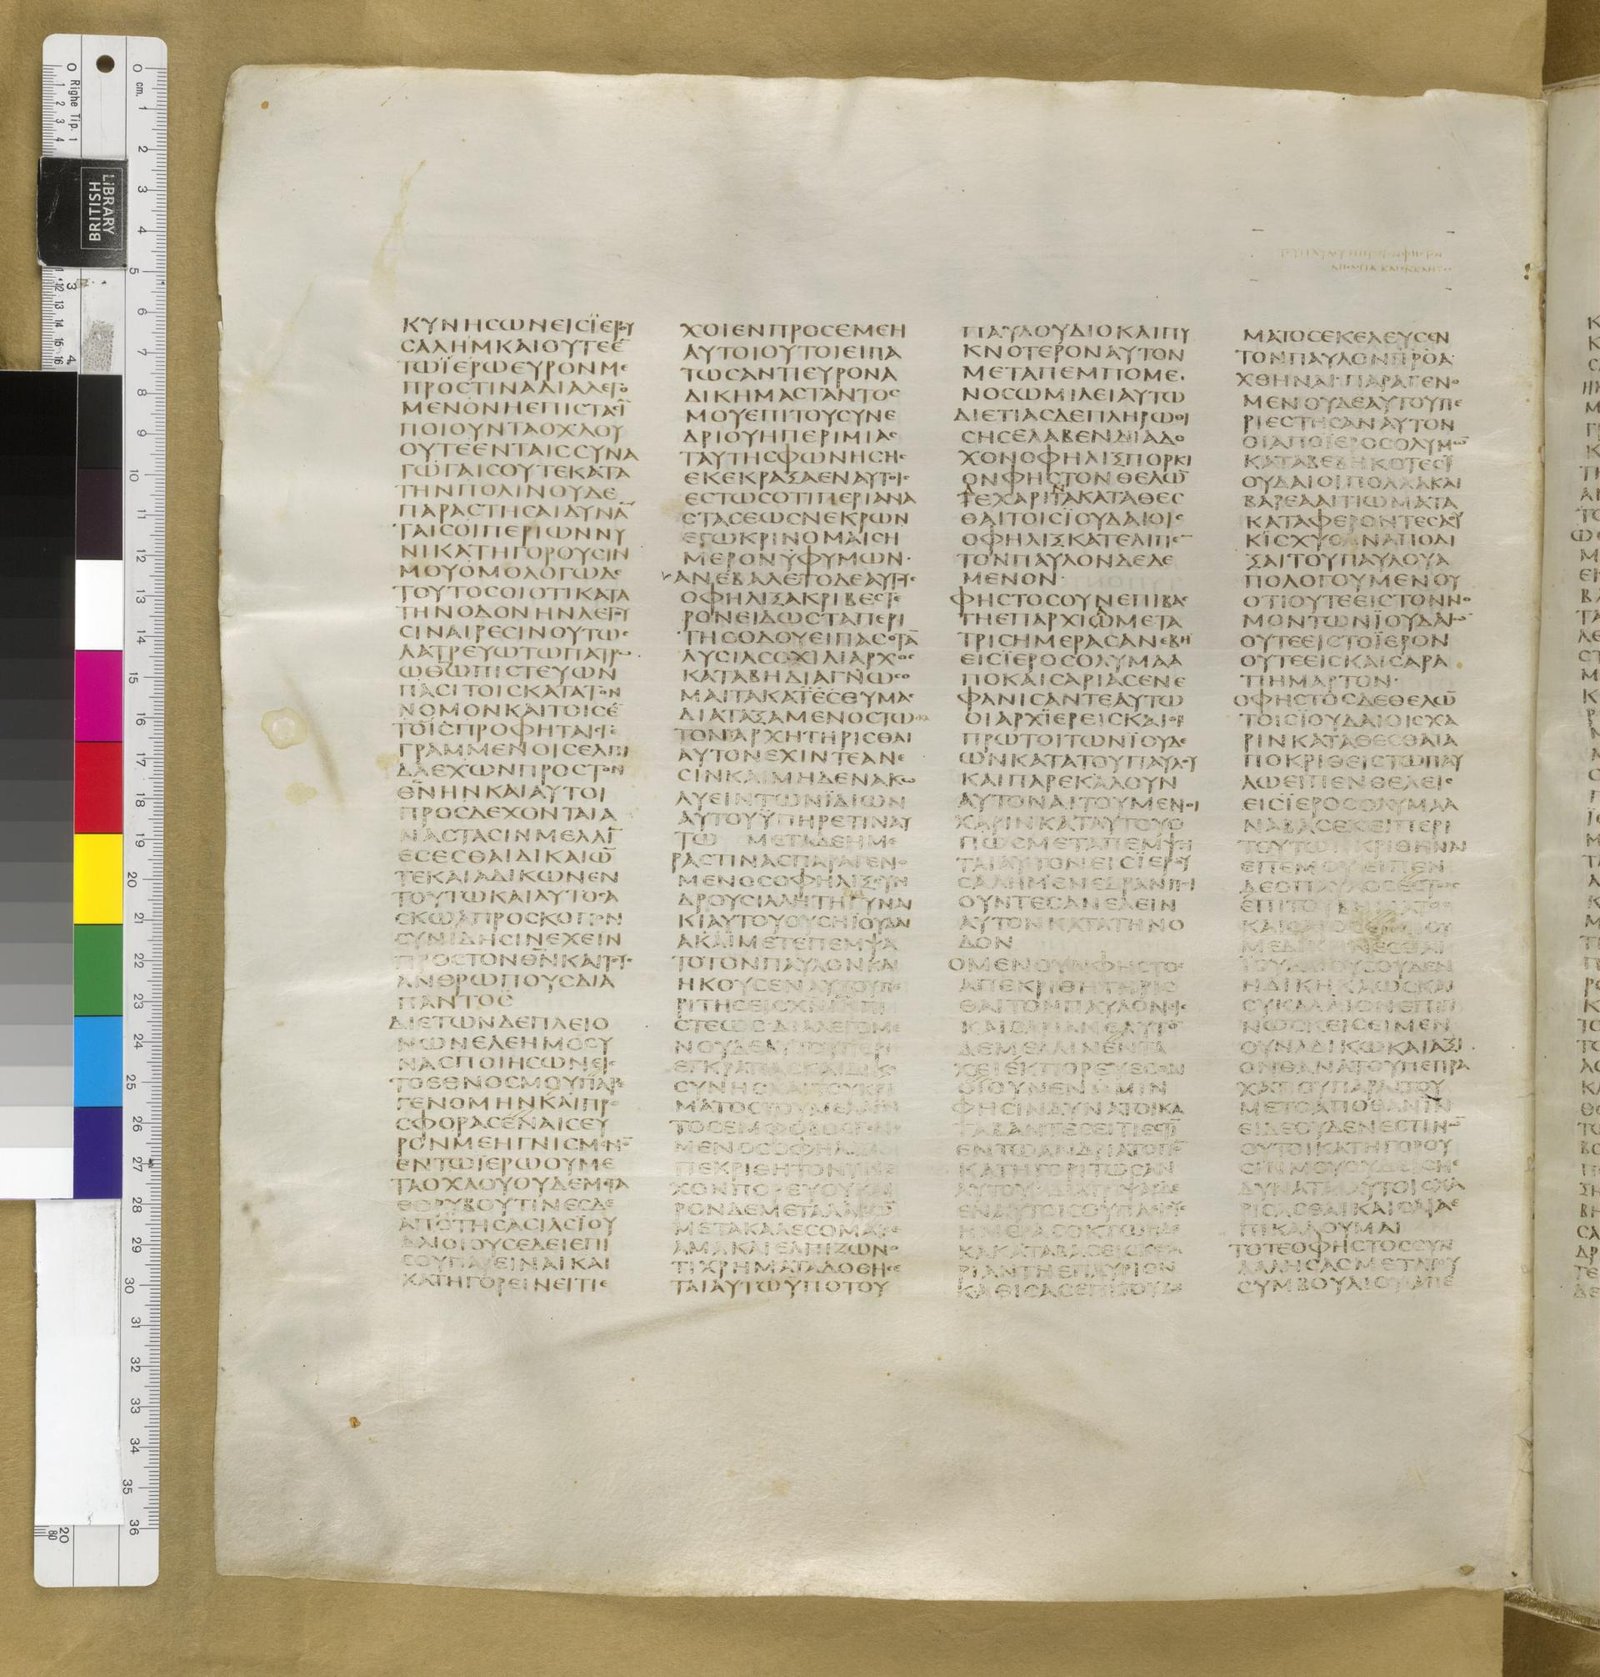 ΚΥΝΗCΩΝΕΙCΪΕΡΟΥ
CΑΛΗΜΚΑΙΟΥΤΕΕ̄
ΤΩΪΕΡΩΕΥΡΟΝΜΕ
ΠΡΟCΤΙΝΑΔΙΑΛΕΓΟ
ΜΕΝΟΝΗΕΠΙCΤΑCΪ
ΠΟΙΟΥΝΤΑΟΧΛΟΥ
ΟΥΤΕΕΝΤΑΙCCΥΝΑ
ΓΩΓΑΙCΟΥΤΕΚΑΤΑ
ΤΗΝΠΟΛΙΝΟΥΔΕ
ΠΑΡΑCΤΗCΑΙΔΥΝᾹ
ΤΑΙCΟΙΠΕΡΙΩΝΝΥ
ΝΙΚΑΤΗΓΟΡΟΥCΙΝ
ΜΟΥΟΜΟΛΟΓΩΔΕ
ΤΟΥΤΟCΟΙΟΤΙΚΑΤΑ
ΤΗΝΟΔΟΝΗΝΛΕΓΟΥ
CΙΝΑΙΡΕCΙΝΟΥΤΩC
ΛΑΤΡΕΥΩΤΩΠΑΤΡΩ
ΩΘΩΠΙCΤΕΥΩΝ
ΠΑCΙΤΟΙCΚΑΤΑΤΟΝ
ΝΟΜΟΝΚΑΙΤΟΙCΕ̄
ΤΟΙCΠΡΟΦΗΤΑΙC
ΓΡΑΜΜΕΝΟΙCΕΛΠΙ
ΔΑΕΧΩΝΠΡΟCΤΟΝ
ΘΝΗΝΚΑΙΑΥΤΟΙ
ΠΡΟCΔΕΧΟΝΤΑΙΑ
ΝΑCΤΑCΙΝΜΕΛΛῙ
ΕCΕCΘΑΙΔΙΚΑΙΩ̄
ΤΕΚΑΙΑΔΙΚΩΝΕΝ
ΤΟΥΤΩΚΑΙΑΥΤΟCΑ
CΚΩΑΠΡΟCΚΟΠΟΝ
CΥΝΙΔΗCΙΝΕΧΕΙΝ
ΠΡΟCΤΟΝΘΝΚΑΙΤΟΥC
ΑΝΘΡΩΠΟΥCΔΙΑ
ΠΑΝΤΟC
ΔΙΕΤΩΝΔΕΠΛΕΙΟ
ΝΩΝΕΛΕΗΜΟCΥ
ΝΑCΠΟΙΗCΩΝΕΙC
ΤΟΕΘΝΟCΜΟΥΠΑΡΕ
ΓΕΝΟΜΗΝΚΑΙΠΡΟ
CΦΟΡΑCΕΝΑΙCΕΥ
ΡΟΝΜΕΗΓΝΙCΜΕΝΟ̄
ΕΝΤΩΪΕΡΩΟΥΜΕ
ΤΑΟΧΛΟΥΟΥΔΕΜΕΤΑ
ΘΟΡΥΒΟΥΤΙΝΕCΔΕ
ΑΠΟΤΗCΑCΙΑCΪΟΥ
ΔΑΙΟΙΟΥCΕΔΕΙΕΠΙ
CΟΥΠΑΡΕΙΝΑΙΚΑΙ
ΚΑΤΗΓΟΡΕΙΝΕΙΤΙΕ
ΧΟΙΕΝΠΡΟCΕΜΕΗ
ΑΥΤΟΙΟΥΤΟΙΕΙΠΑ
ΤΩCΑΝΤΙΕΥΡΟΝΑ
ΔΙΚΗΜΑCΤΑΝΤΟC
ΜΟΥΕΠΙΤΟΥCΥΝΕ
ΔΡΙΟΥΗΠΕΡΙΜΙΑC
ΤΑΥΤΗCΦΩΝΗCΗC
ΕΚΕΚΡΑΞΑΕΝΑΥΤΟΙC
ΕCΤΩCΟΤΙΠΕΡΙΑΝΑ
CΤΑCΕΩCΝΕΚΡΩΝ
ΕΓΩΚΡΙΝΟΜΑΙCΗ
ΜΕΡΟΝΫΦΥΜΩΝ·
ΑΝΕΒΑΛΕΤΟΔΕΑΥΤΟΥC
ΟΦΗΛΙΞΑΚΡΙΒΕCΤΕ
ΡΟΝΕΙΔΩCΤΑΠΕΡΙ
ΤΗCΟΔΟΥΕΙΠΑCΟΤᾹ
ΛΥCΙΑCΟΧΙΛΙΑΡΧΟC
ΚΑΤΑΒΗΔΙΑΓΝΩCΟ
ΜΑΙΤΑΚΑΤΕCΘΥΜΑC
ΔΙΑΤΑΞΑΜΕΝΟCΤΩ
ΤΟΝΤΑΡΧΗΤΗΡΙCΘΑΙ
ΑΥΤΟΝΕΧΙΝΤΕΑΝΕ
CΙΝΚΑΙΜΗΔΕΝΑΚΩ
ΛΥΕΙΝΤΩΝΪΔΙΩΝ
ΑΥΤΟΥΫΠΗΡΕΤΙΝΑΥ
ΤΩ ΜΕΤΑΔΕΗΜΕ
ΡΑCΤΙΝΑCΠΑΡΑΓΕΝΟ
ΜΕΝΟCΟΦΗΛΙΞCΥΝ
ΔΡΟΥCΙΛΛΙΤΗΓΥΝΑΙ
ΚΙΑΥΤΟΥΟΥCΗΪΟΥΔΑΙ
ΑΚΑΙΜΕΤΕΠΕΜΨΑ
ΤΟΤΟΝΠΑΥΛΟΝΚΑΙ
ΗΚΟΥCΕΝΑΥΤΟΥΠΕ
ΡΙΤΗCΕΙCΧΝΙΝΠΙ
CΤΕΩC·ΔΙΑΛΕΓΟΜΕ
ΝΟΥΔΕΑΥΤΟΥΠΕΡΙ
ΕΓΚΡΑΤΙΑCΚΑΙΔΙΚΕΟ
CΥΝΗCΚΑΙΤΟΥΚΡΙ
ΜΑΤΟCΤΟΥΜΕΛΛΟΝ
ΤΟCΕΜΦΟΒΟCΓΕΝΟ
ΜΕΝΟCΟΦΗΛΙΞΑ
ΠΕΚΡΙΘΗΤΟΝΥΝΕ
ΧΟΝΠΟΡΕΥΟΥΚΑΙ
ΡΟΝΔΕΜΕΤΑΛΑΒΩ̄
ΜΕΤΑΚΑΛΕCΟΜΑΙCΕ
ΑΜΑΚΑΙΕΛΠΙΖΩΝΟ
ΤΙΧΡΗΜΑΤΑΔΟΘΗCΕ
ΤΑΙΑΥΤΩΫΠΟΤΟΥ
ΠΑΥΛΟΥΔΙΟΚΑΙΠΥ
ΚΝΟΤΕΡΟΝΑΥΤΟΝ
ΜΕΤΑΠΕΜΠΟΜΕ
ΝΟCΩΜΙΛΕΙΑΥΤΩ
ΔΙΕΤΙΑCΔΕΠΛΗΡΩΘΙ
CΗCΕΛΑΒΕΝΔΙΑΔΟ
ΧΟΝΟΦΗΛΙΞΠΟΡΚΙ
ΟΝΦΗCΤΟΝΘΕΛΩ̄
ΤΕΧΑΡΙΤΑΚΑΤΑΘΕC
ΘΑΙΤΟΙCΪΟΥΔΑΙΟΙC
ΟΦΗΛΙΞΚΑΤΕΛΙΠΕ̄
ΤΟΝΠΑΥΛΟΝΔΕΔΕ
ΜΕΝΟΝ·
ΦΗCΤΟCΟΥΝΕΠΙΒΑC
ΤΗΕΠΑΡΧΙΩΜΕΤΑ
ΤΡΙCΗΜΕΡΑCΑΝΕΒΗ
ΕΙCΪΕΡΟCΟΛΥΜΑΑ
ΠΟΚΑΙCΑΡΙΑCΕΝΕ
ΦΑΝΙCΑΝΤΕΑΥΤΩ
ΟΙΑΡΧΪΕΡΕΙCΚΑΙΟΙ
ΠΡΩΤΟΙΤΩΝΪΟΥΔΑΙ
ΩΝΚΑΤΑΤΟΥΠΑΥΛΟΥ
ΚΑΙΠΑΡΕΚΑΛΟΥΝ
ΑΥΤΟΝΑΙΤΟΥΜΕΝΟΙ
ΧΑΡΙΝΚΑΤΑΥΤΟΥΟ
ΠΩCΜΕΤΑΠΕΜΨΗ
ΤΑΙΑΥΤΟΝΕΙCΪΕΡΟΥ
CΑΛΗΜΕΝΕΔΡΑΝΠΟΙ
ΟΥΝΤΕCΑΝΕΛΕΙΝ
ΑΥΤΟΝΚΑΤΑΤΗΝΟ
ΔΟΝ
ΟΜΕΝΟΥΝΦΗCΤΟC
ΑΠΕΚΡΙΘΗΤΗΡΙC
ΘΑΙΤΟΝΠΑΥΛΟΝΕΙC
ΚΑΙCΑΡΙΑΝΕΑΥΤΟ̄
ΔΕΜΕΛΛΙΝΕΝΤΑ
ΧΕΙΕΚΠΟΡΕΥΕCΘΑΙ
ΟΙΟΥΝΕΝΥΜΙΝ
ΦΗCΙΝΔΥΝΑΤΟΙΚΑ
ΤΑΒΑΝΤΕCΕΙΤΙΕCΤῙ
ΕΝΤΩΑΝΔΡΙΑΤΟΠΟ̄
ΚΑΤΗΓΟΡΙΤΩCΑΝ
ΑΥΤΟΥ·ΔΙΑΤΡΙΨΑCΔΕ
ΕΝΑΥΤΟΙCΟΥΠΛΕΙΟΥC
ΗΜΕΡΑCΟΚΤΩΗΔΕ
ΚΑΚΑΤΑΒΑCΕΙCΚΕCΑ
ΡΙΑΝΤΗΕΠΑΥΡΙΟΝ
ΚΑΘΙCΑCΕΠΙΤΟΥΒΗ
ΜΑΤΟCΕΚΕΛΕΥCΕΝ
ΤΟΝΠΑΥΛΟΝΠΡΟΑ
ΧΘΗΝΑΙ·ΠΑΡΑΓΕΝΟ
ΜΕΝΟΥΔΕΑΥΤΟΥΠΕ
ΡΙΕCΤΗCΑΝΑΥΤΟΝ
ΟΙΑΠΟΪΕΡΟCΟΛΥΜΩ̄
ΚΑΤΑΒΕΒΗΚΟΤΕCΪ
ΟΥΔΑΙΟΙΠΟΛΛΑΚΑΙ
ΒΑΡΕΑΑΙΤΙΩΜΑΤΑ
ΚΑΤΑΦΕΡΟΝΤΕCΑΟΥ
ΚΙCΧΥΟΝΑΠΟΔΙ
ΞΑΙΤΟΥΠΑΥΛΟΥΑ
ΠΟΛΟΓΟΥΜΕΝΟΥ
ΟΤΙΟΥΤΕΕΙCΤΟΝΝΟ
ΜΟΝΤΩΝΪΟΥΔΑΙΩ̄
ΟΥΤΕΕΙCΤΟΪΕΡΟΝ
ΟΥΤΕΕΙCΚΑΙCΑΡΑ
ΤΙΗΜΑΡΤΟΝ·
ΟΦΗCΤΟCΔΕΘΕΛΩ̄
ΤΟΙCΪΟΥΔΑΙΟΙCΧΑ
ΡΙΝΚΑΤΑΘΕCΘΑΙΑ
ΠΟΚΡΙΘΕΙCΤΩΠΑΥ
ΛΩΕΙΠΕΝΘΕΛΕΙC
ΕΙCΪΕΡΟCΟΛΥΜΑΑ
ΝΑΒΑCΕΚΕΙΠΕΡΙ
ΤΟΥΤΩΝΚΡΙΘΗΝΑΙ
ΕΠΕΜΟΥΕΙΠΕΝ
ΔΕΟΠΑΥΛΟCΕCΤΩC
ΕΠΙΤΟΥΒΗΜΑΤΟC
ΚΑΙCΑΡΟCΕΙΜΙΟΥ
ΜΕΔΙΚΡΙΝΕCΘΑΙ
ΪΟΥΔΑΙΟΥCΟΥΔΕΝ
ΗΔΙΚΗΚΑΩCΚΑΙ
CΥΚΑΛΛΙΟΝΕΠΙΓΙ
ΝΩCΚΕΙCΕΙΜΕΝ
ΟΥΝΑΔΙΚΩΚΑΙΑΞΙ
ΟΝΘΑΝΑΤΟΥΠΕΠΡΑ
ΧΑΤΙΟΥΠΑΡΑΙΤΟΥ
ΜΕΤΟΑΠΟΘΑΝΙΝ
ΕΙΔΕΟΥΔΕΝΕCΤΙΝΩ̄
ΟΥΤΟΙΚΑΤΗΓΟΡΟΥ
CΙΝΜΟΥΟΥΔΕΙCΜΕ
ΔΥΝΑΤΑΙΑΥΤΟΙCΧΑ
ΡΙCΑCΘΑΙΚΑΙCΑΡΑΕ
ΠΙΚΑΛΟΥΜΑΙ
ΤΟΤΕΟΦΗCΤΟCCΥΝ
ΛΑΛΗCΑCΜΕΤΑΤΟΥ
CΥΜΒΟΥΛΙΟΥΑΠΕ